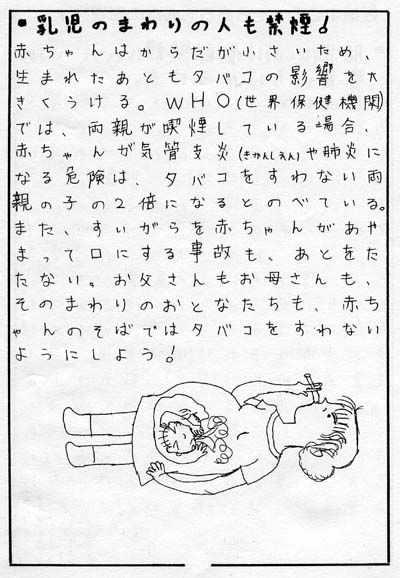 •乳児のまわりの人も禁煙!
赤ちゃんはからだが小さいため、
生まれたあともタバコの影響を大
きくうける。WHO(世界保健機関)
では、両親が喫煙している場合、
赤ちゃんが気管支炎(きかんしえん)や肺炎に
なる危険は、タバコをすわない両
親の子の2倍になるとのべている。
また、すいがらを赤ちゃんがあや
まって口にする事故も、あとをた
たない。お父さんもお母さんも、
そのまわりのおとなたちも、赤ち
ゃんのそばではタバコをすわない
ようにしよう!